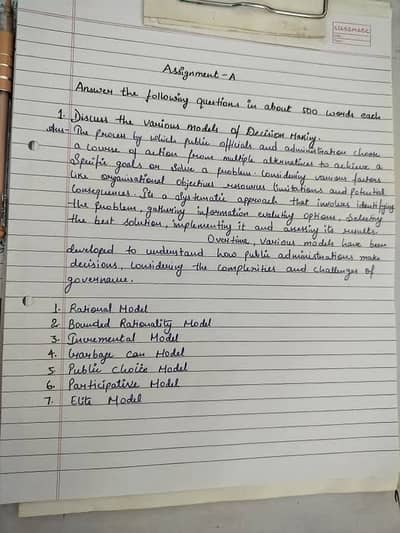 classmate
Assignment - A
Answer the following questions in about 500 words each
1. Discuss the various models of Decision Making.
Ans- The process by which public officials and administration choose
a course of action from multiple alternatives to achieve a
specific goals or solve a problem. Considering various factors
like organisational objectives resources limitations and potential
consequences. Its a systematic approach that involves identifying
the problem, gathering information evaluting options, selecting
the best solution, implementing it and assessing its results.
Overtime, various models have been
developed to understand how public administrations make
decisions, considering the complexities and challenges of
governance.
1. Rational Model
2. Bounded Rationality Model
3. Incremental Model
4. Garbage can Model
5. Public choice Model
6. Participative Model
7. Elite Model